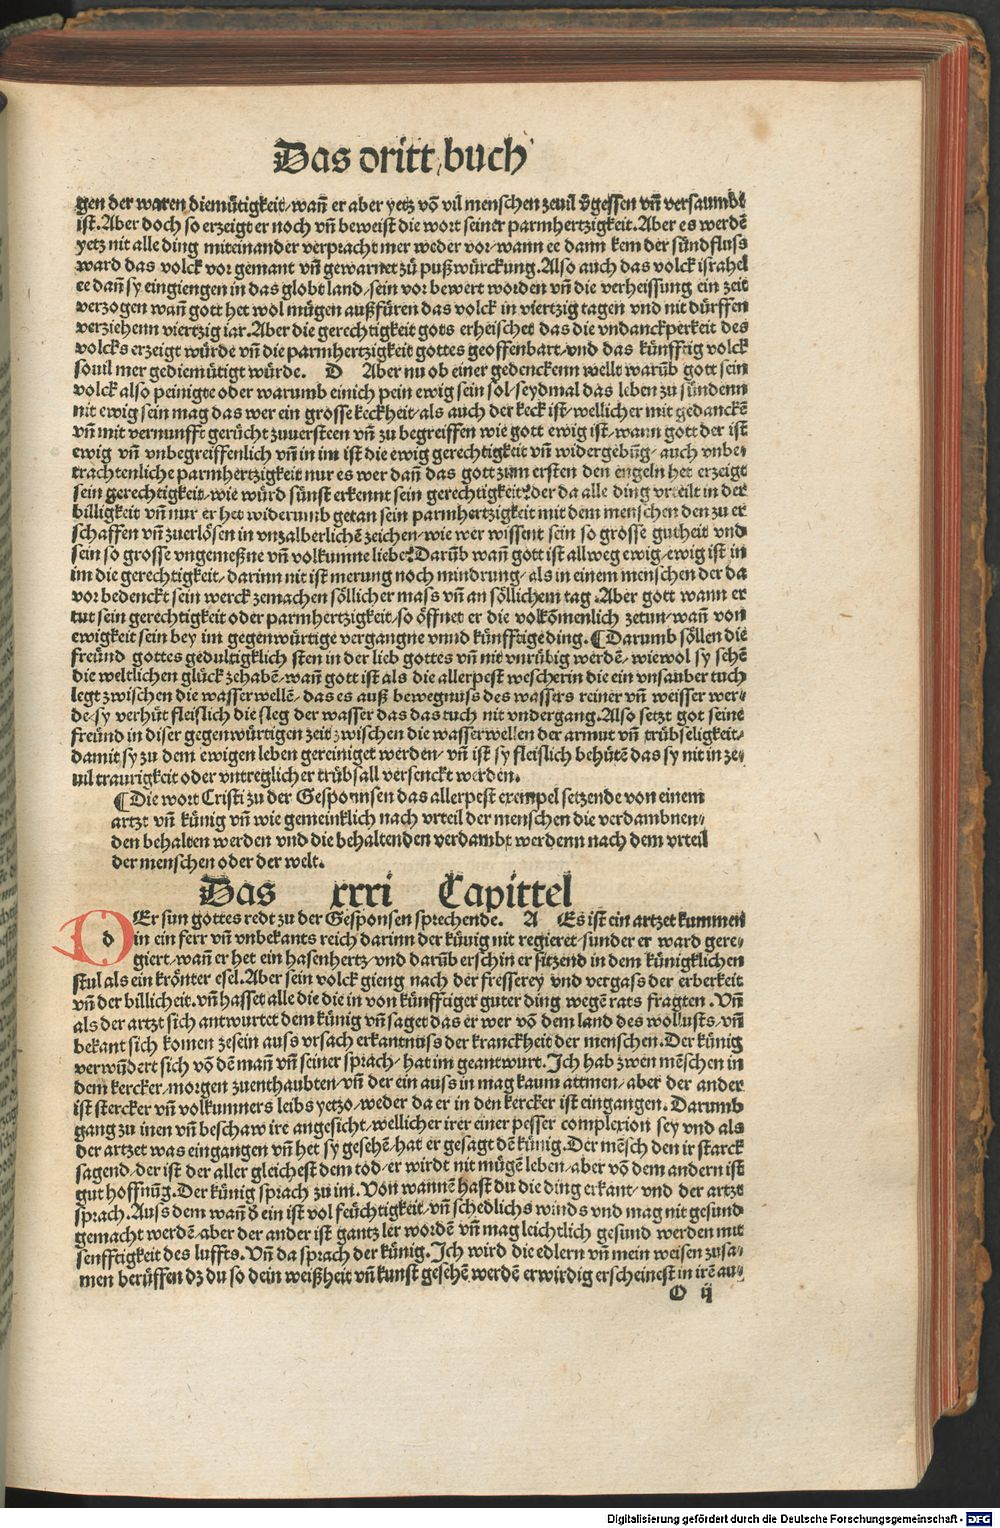 Das dritt buch
gen der waren diemütigkeit/ wañ er aber yetz võ vil menschen zeuil v̈gessen vñ versaumbt
ist. Aber doch so erzeigt er noch vñ beweist die wort seiner parmhertzigkeit. Aber es werdẽ
yetz nit alle ding miteinander verpracht mer weder vor/ wann ee dann kem der sündfluss
ward das volck vor gemant vñ gewarnet zů pußwürckung. Also auch das volck israhel
ee dañ sy eingiengen in das globt land/ sein vor bewert worden vñ die verheissung ein zeit
verzogen wañ gott het wol mügen außfüren das volck in viertzig tagen vnd nit dürffen
verziehenn viertzig iar. Aber die gerechtigkeit gots erheischet das die vndanckperkeit des
volcks erzeigt würde vñ die parmhertzigkeit gottes geoffenbart/ vnd das künfftig volck
souil mer gediemütigt würde. D Aber nu ob einer gedencken wellt warũb gott sein
volck also peinigte oder warumb einich pein ewig sein söl/ seydmal das leben zu sündenn
nit ewig sein mag das wer ein grosse keckheit/ als auch der keck ist/ wellicher mit gedanckẽ
vñ mit vernunfft gerücht zuuersteen vñ zu begreiffen wie gott ewig ist/ wann gott der ist
ewig vñ vnbegreiffenlich vñ in im ist die ewig gerechtigkeit vñ widergebũg/ auch vnbe/
trachtenliche parmhertzigkeit nur es wer dañ das gott zum ersten den engeln het erzeigt
sein gerechtigkeit/ wie würd sünst erkennt sein gerechtigkeit? der da alle ding vrteilt in der
billigkeit vñ nur er het widerumb getan sein parmhertzigkeit mit dem menschen den zu er
schaffen vñ zuerlösen in vnzalberlichẽ zeichen/ wie wer wissent sein so grosse gutheit vnd
sein so grosse vngemeßne vñ volkumne liebe? Darũb wañ gott ist allweg ewig/ ewig ist in
im die gerechtigkeit/ darinn nit ist merung noch mindrung/ als in einem menschen der da
vor bedenckt sein werck zemachen söllicher mass vñ an söllichem tag. Aber gott wann er
tut sein gerechtigkeit oder parmhertzigkeit/ so öffnet er die volkõmenlich zetun/ wañ von
ewigkeit sein bey im gegenwürtige vergangne vnnd künfftige ding. ¶ Darumb söllen die
freünd gottes gedultigklich sten in der lieb gottes vñ nit vnrübig werdẽ/ wiewol sy sehẽ
die weltlichen glück zehabẽ/ wañ gott ist als die allerpest wescherin die ein vnsauber tuch
legt zwischen die wasserwellẽ/ das es auß bewegnuss des wassers reiner vñ weisser wer/
de/ sy verhüt fleislich die sleg der wasser das das tuch nit vndergang. Also setzt got seine
freünd in diser gegenwürtigen zeit zwischen die wasserwellen der armut vñ trübseligkeit/
damit sy zu dem ewigen leben gereiniget werden/ vñ ist sy fleislich behütẽ das sy nit in ze/
uil traurigkeit oder vntreglicher trübsall versenckt werden.
¶ Die wort Cristi zu der Gesponnsen das allerpest exempel setzende von einem
artzt vñ künig vñ wie gemeinklich nach vrteil der menschen die verdambnen/
den behalten werden vnd die behaltenden verdambt werdenn nach dem vrteil
der menschen oder der welt.
Das xxxi Capittel
dEr sun gottes redt zu der Gesponsen sprechende. A Es ist ein artzet kummen
in ein ferr vñ vnbekants reich darinn der künig nit regieret/ sunder er ward gere/
giert/ wañ er het ein hasenhertz/ vnd darũb erschin er sitzend in dem künigklichen
stul als ein krönter esel. Aber sein volck gieng nach der fresserey vnd vergass der erberkeit
vñ der billicheit. vñ hasset alle die die in von künfftiger guter ding wegẽ rats fragten. Vñ
als der artzt sich antwurtet dem künig vñ saget das er wer võ dem land des wollusts/ vñ
bekant sich komen zesein auss vrsach erkantnuss der kranckheit der menschen. Der künig
verwũdert sich võ dẽ mañ vñ seiner sprach/ hat im geantwurt. Ich hab zwen mẽschen in
dem kercker/ morgen zuenthaubten/ vñ der ein auss in mag kaum attmen/ aber der ander
ist stercker vñ volkumners leibs yetzo/ weder da er in den kercker ist eingangen. Darumb
gang zu inen vñ beschaw ire angesicht/ wellicher irer einer pesser complexion sey vnd als
der artzet was eingangen vñ het sy gesehẽ/ hat er gesagt dẽ künig. Der mẽsch den ir starck
sagend/ der ist der aller gleichest dem tod/ er wirdt nit mügẽ leben/ aber võ dem andern ist
gut hoffnũg. Der künig sprach zu im. Von wannẽ hast du die ding erkant/ vnd der artzt
sprach. Auss dem wañ d̈ ein ist vol feüchtigkeit/ vñ schedlichs winds vnd mag nit gesund
gemacht werdẽ/ aber der ander ist gantz ler wordẽ vñ mag leichtlich gesund werden mit
senfftigkeit des luffts. Vñ da sprach der künig. Ich wird die edlern vñ mein weisen zusa/
men berüffen dz du so dein weißheit vñ kunst gesehẽ werdẽ erwirdig erscheinest in irẽ au/
O ij
Digitalisierung gefördert durch die Deutsche Forschungsgemeinschaft - DFG